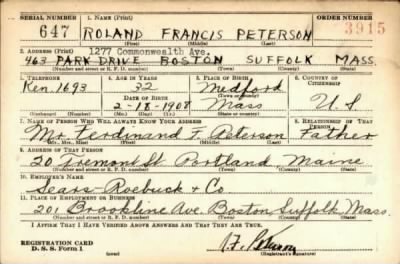 SERIAL NUMBER 1. NAME (Print) ORDER NUMBER
647 ROLAND FRANCIS PETERSON 3915
(First) (Middle) (Last)
2. ADDRESS (Print) 1277 Commonwealth Ave.
463 PARK DRIVE BOSTON SUFFOLK MASS.
(Number and street or R. F. D. number) (Town) (County) (State)
3. TELEPHONE 4. AGE IN YEARS 5. PLACE OF BIRTH 6. COUNTRY OF CITIZENSHIP
Ken. 1693 32 Medford
DATE OF BIRTH (Town or county)
2-18-1908 Mass U.S
(Exchange) (Number) (Mo.) (Day) (Yr.) (State or country)
7. NAME OF PERSON WHO WILL ALWAYS KNOW YOUR ADDRESS 8. RELATIONSHIP OF THAT PERSON
Mr. Ferdinand F. Peterson Father
(Mr., Mrs., Miss) (First) (Middle) (Last)
9. ADDRESS OF THAT PERSON
20 Fremont St Portland Maine
(Number and street or R. F. D. number) (Town) (County) (State)
10. EMPLOYER'S NAME
Sears-Roebuck & Co
11. PLACE OF EMPLOYMENT OR BUSINESS
201 Brookline Ave. Boston Suffolk Mass.
(Number and street or R. F. D. number) (Town) (County) (State)
I AFFIRM THAT I HAVE VERIFIED ABOVE ANSWERS AND THAT THEY ARE TRUE.
REGISTRATION CARD
D. S. S. Form 1 Peterson
(Registrant's signature)